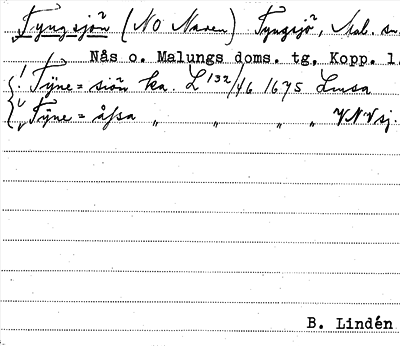 Tyngsjön (NO Naren) Tyngsjö, Mal. sn.
Nås o. Malungs doms. tg, Kopp. l.
Tÿne=siön ka. L132/46 1675 Lmsa
Tÿne=åssa " " " " VNVsj.
B. Lindén